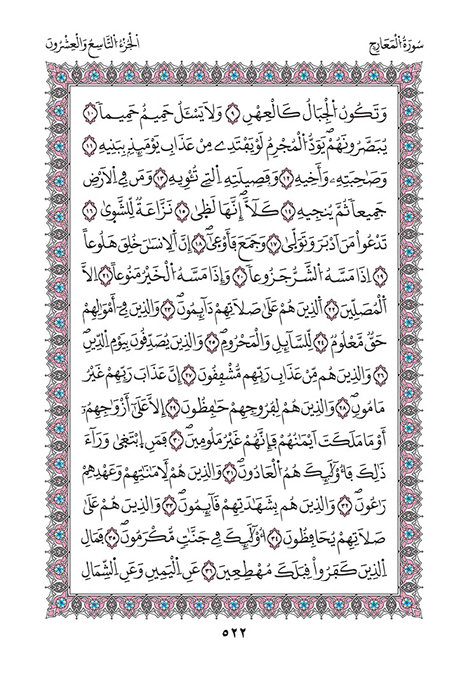 سُورَةُ الْمَعَارِجِ الْجُزْءُ التَّاسِعُ وَالْعِشْرُونَ
وَتَكُونُ الْجِبَالُ كَالْعِهْنِ ٩ وَلَا يَسْـَٔلُ حَمِيمٌ حَمِيماً ١٠
يُبَصَّرُونَهُمْ يَوَدُّ الْمُجْرِمُ لَوْ يَفْتَدِے مِنْ عَذَابِ يَوْمَئِذٍ بِبَنِيهِ ١١
وَصَاحِبَتِهِۦ وَأَخِيهِ ١٢ وَفَصِيلَتِهِ الَّتِے تُـْٔوِيهِ ١٣ وَمَن فِے الْأَرْضِ
جَمِيعاً ثُمَّ يُنجِيهِ ١٤ كَلَّا إِنَّهَا لَظَىٰ ١٥ نَزَّاعَةٌ لِّلشَّوَىٰ ١٦
تَدْعُواْ مَنْ أَدْبَرَ وَتَوَلَّىٰ ١٧ وَجَمَعَ فَأَوْعَىٰ ١٨ إِنَّ الْإِنسَٰنَ خُلِقَ هَلُوعاً
١٩ إِذَا مَسَّهُ الشَّرُّ جَزُوعاً ٢٠ وَإِذَا مَسَّهُ الْخَيْرُ مَنُوعاً ٢١ إِلَّا
الْمُصَلِّينَ ٢٢ الَّذِينَ هُمْ عَلَىٰ صَلَاتِهِمْ دَآئِمُونَ ٢٣ وَالَّذِينَ فِے أَمْوَٰلِهِمْ
حَقٌّ مَّعْلُومٌ ٢٤ لِّلسَّآئِلِ وَالْمَحْرُومِ ٢٥ وَالَّذِينَ يُصَدِّقُونَ بِيَوْمِ الدِّينِ
٢٦ وَالَّذِينَ هُم مِّنْ عَذَابِ رَبِّهِم مُّشْفِقُونَ ٢٧ إِنَّ عَذَابَ رَبِّهِمْ غَيْرُ
مَأْمُونٍ ٢٨ وَالَّذِينَ هُمْ لِفُرُوجِهِمْ حَٰفِظُونَ ٢٩ إِلَّا عَلَىٰ أَزْوَٰجِهِمْ
أَوْ مَا مَلَكَتْ أَيْمَٰنُهُمْ فَإِنَّهُمْ غَيْرُ مَلُومِينَ ٣٠ فَمَنِ ابْتَغَىٰ وَرَآءَ
ذَٰلِكَ فَأُوْلَٰٓئِكَ هُمُ الْعَادُونَ ٣١ وَالَّذِينَ هُمْ لِأَمَٰنَٰتِهِمْ وَعَهْدِهِمْ
رَٰعُونَ ٣٢ وَالَّذِينَ هُم بِشَهَٰدَتِهِمْ قَآئِمُونَ ٣٣ وَالَّذِينَ هُمْ عَلَىٰ
صَلَاتِهِمْ يُحَافِظُونَ ٣٤ أُوْلَٰٓئِكَ فِے جَنَّٰتٍ مُّكْرَمُونَ ٣٥ فَمَالِ
الَّذِينَ كَفَرُواْ قِبَلَكَ مُهْطِعِينَ ٣٦ عَنِ الْيَمِينِ وَعَنِ الشِّمَالِ
٥٢٢